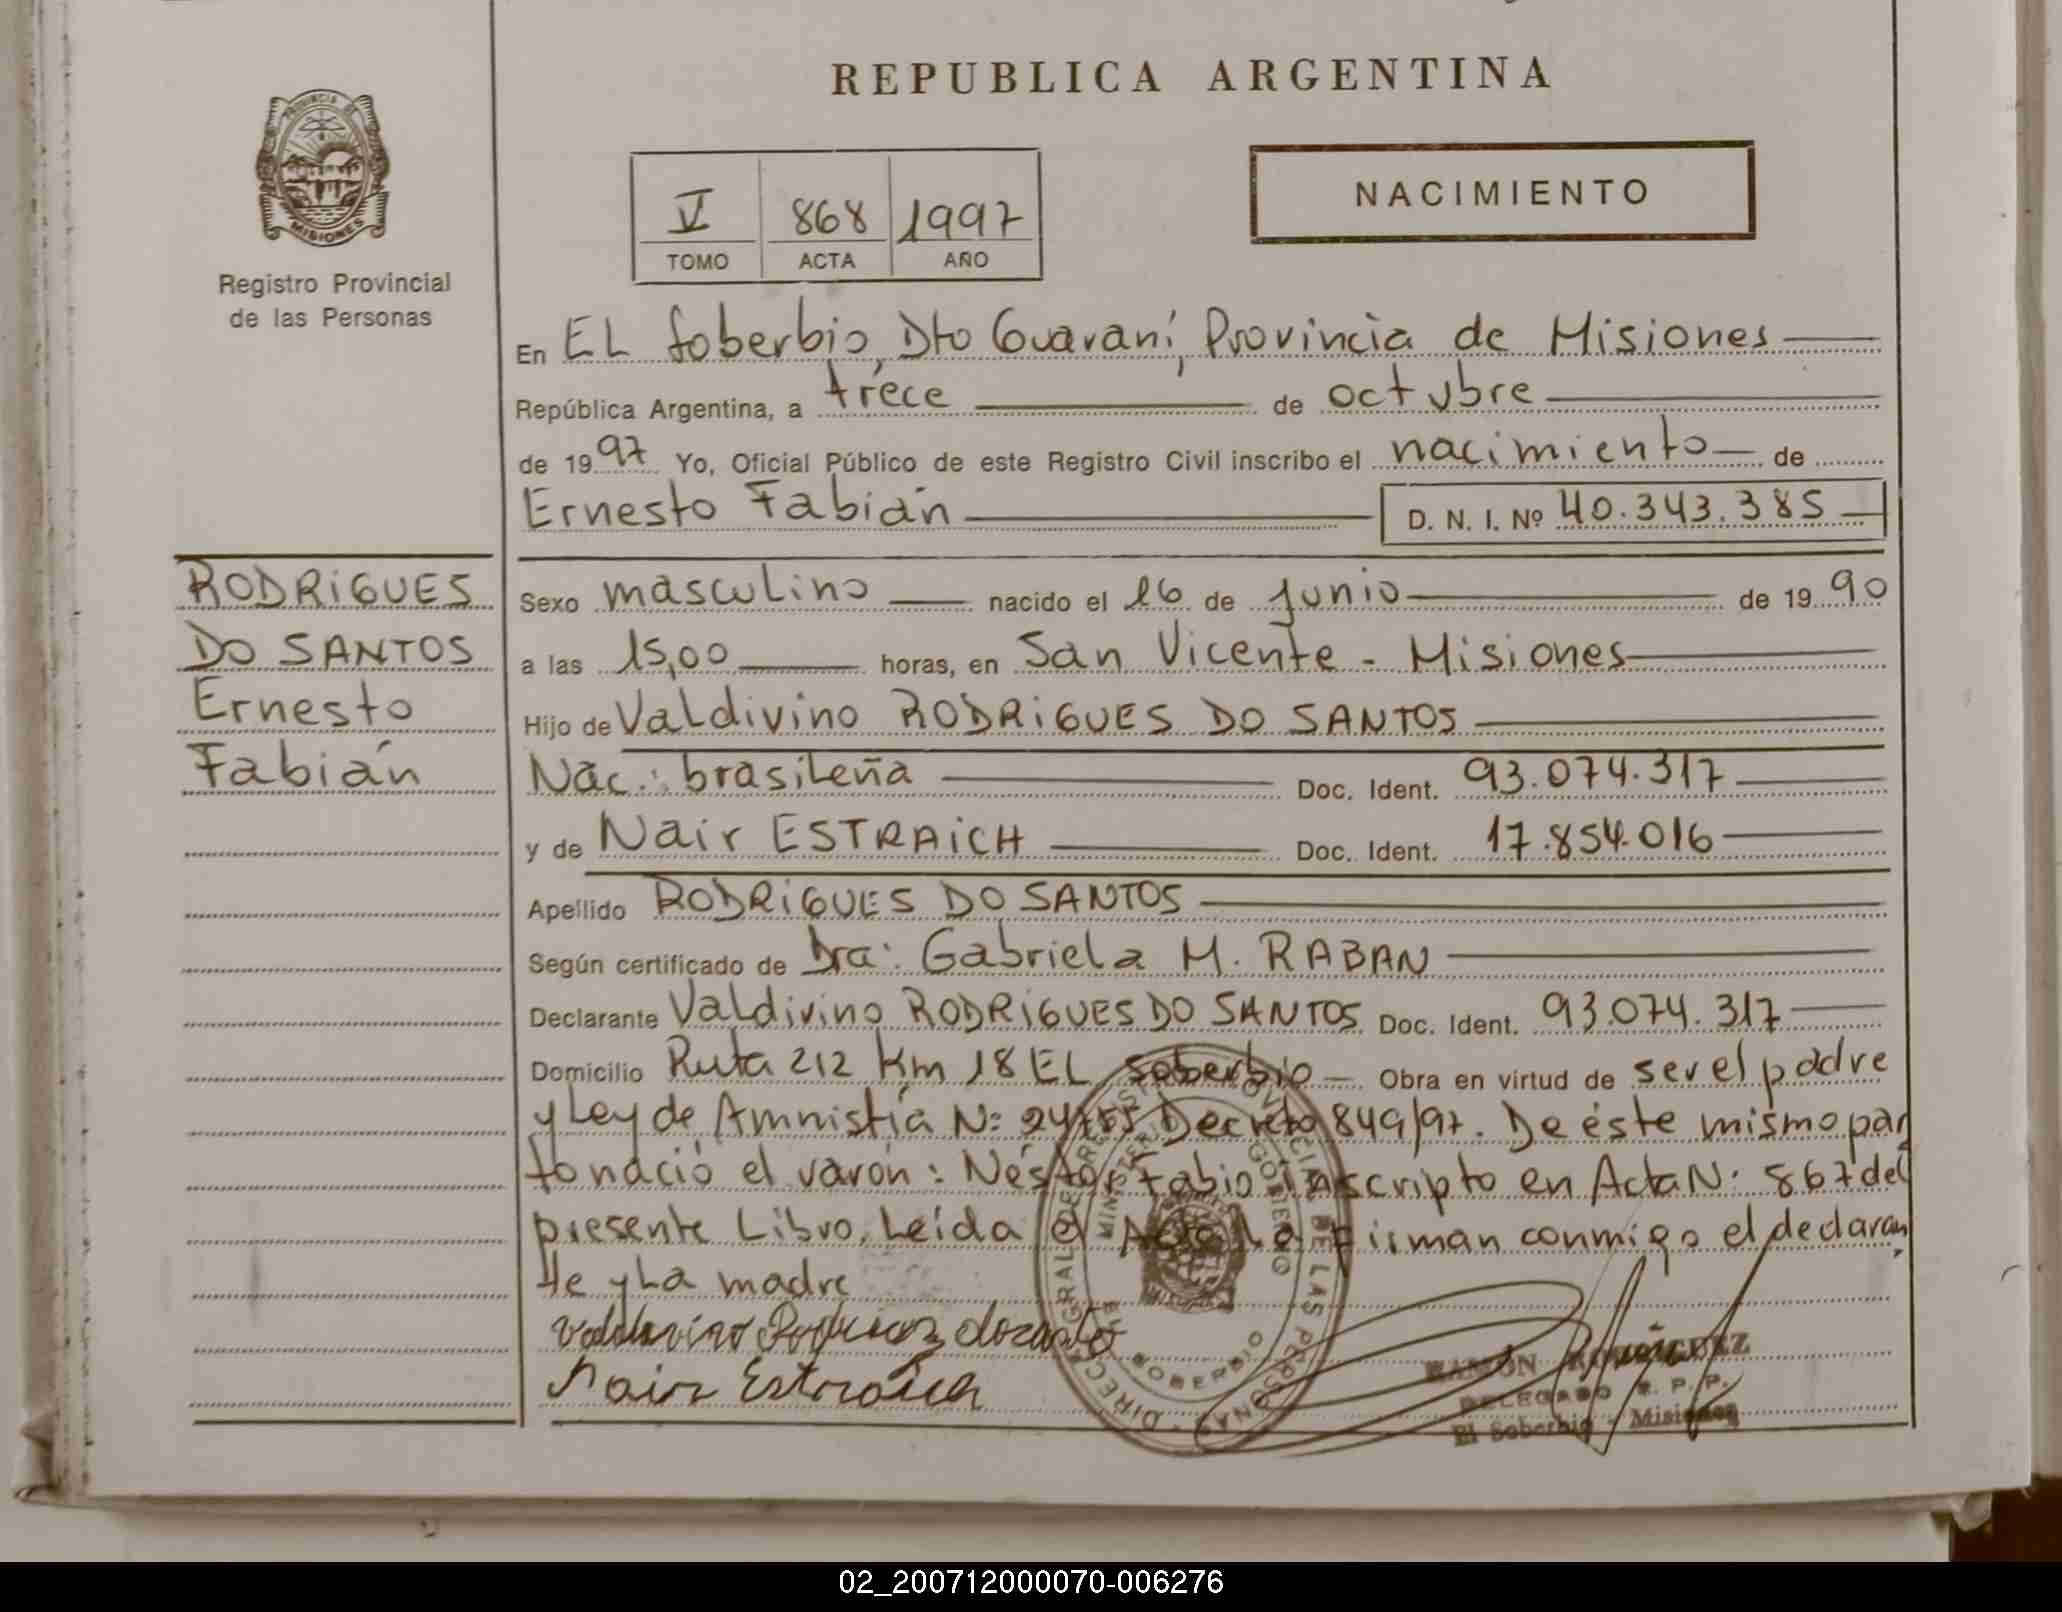 REPUBLICA ARGENTINA
PROVINCIA DE
MISIONES
Registro Provincial
de las Personas
V 868 1997
TOMO ACTA AÑO
NACIMIENTO
En EL Soberbio, Dto Guaraní, Provincia de Misiones
República Argentina, a trece de octubre
de 1997 Yo, Oficial Público de este Registro Civil inscribo el nacimiento de
Ernesto Fabián D. N. I. Nº 40.343.385
RODRIGUES
DO SANTOS
Ernesto
Fabián
Sexo masculino nacido el 16 de junio de 1990
a las 15,00 horas, en San Vicente - Misiones
Hijo de Valdivino RODRIGUES DO SANTOS
Nac.: brasileña Doc. Ident. 93.074.317
y de Nair ESTRAICH Doc. Ident. 17.854.016
Apellido RODRIGUES DO SANTOS
Según certificado de Dra: Gabriela M. RABAN
Declarante Valdivino RODRIGUES DO SANTOS Doc. Ident. 93.074.317
Domicilio Ruta 212 Km 18 EL Soberbio Obra en virtud de ser el padre
y Ley de Amnistía N: 24755 Decreto 849/97. De éste mismo par
to nació el varón: Néstor Fabio inscripto en Acta N: 867 del
presente Libro. Leída el Acta la firman conmigo el declaran
te y La madre
Nair Estraich
DIRECC. GRAL. DE REGISTRO PROVINCIAL DE LAS PERSONAS
MINISTERIO DE GOBIERNO
SOBERBIO
RAMÓN RODRIGUEZ
DELEGADO R. P. P.
El Soberbio - Misiones
02_200712000070-006276